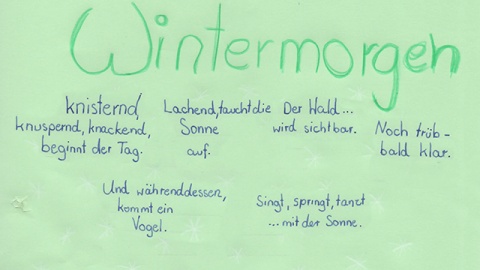 Wintermorgen
knisternd,
knuspernd, knackend,
beginnt der Tag.
Lachend, taucht die
Sonne
auf.
Der Wald...
wird sichtbar.
Noch trüb-
bald klar.
Und währenddessen,
kommt ein
Vogel.
Singt, springt, tanzt
...mit der Sonne.